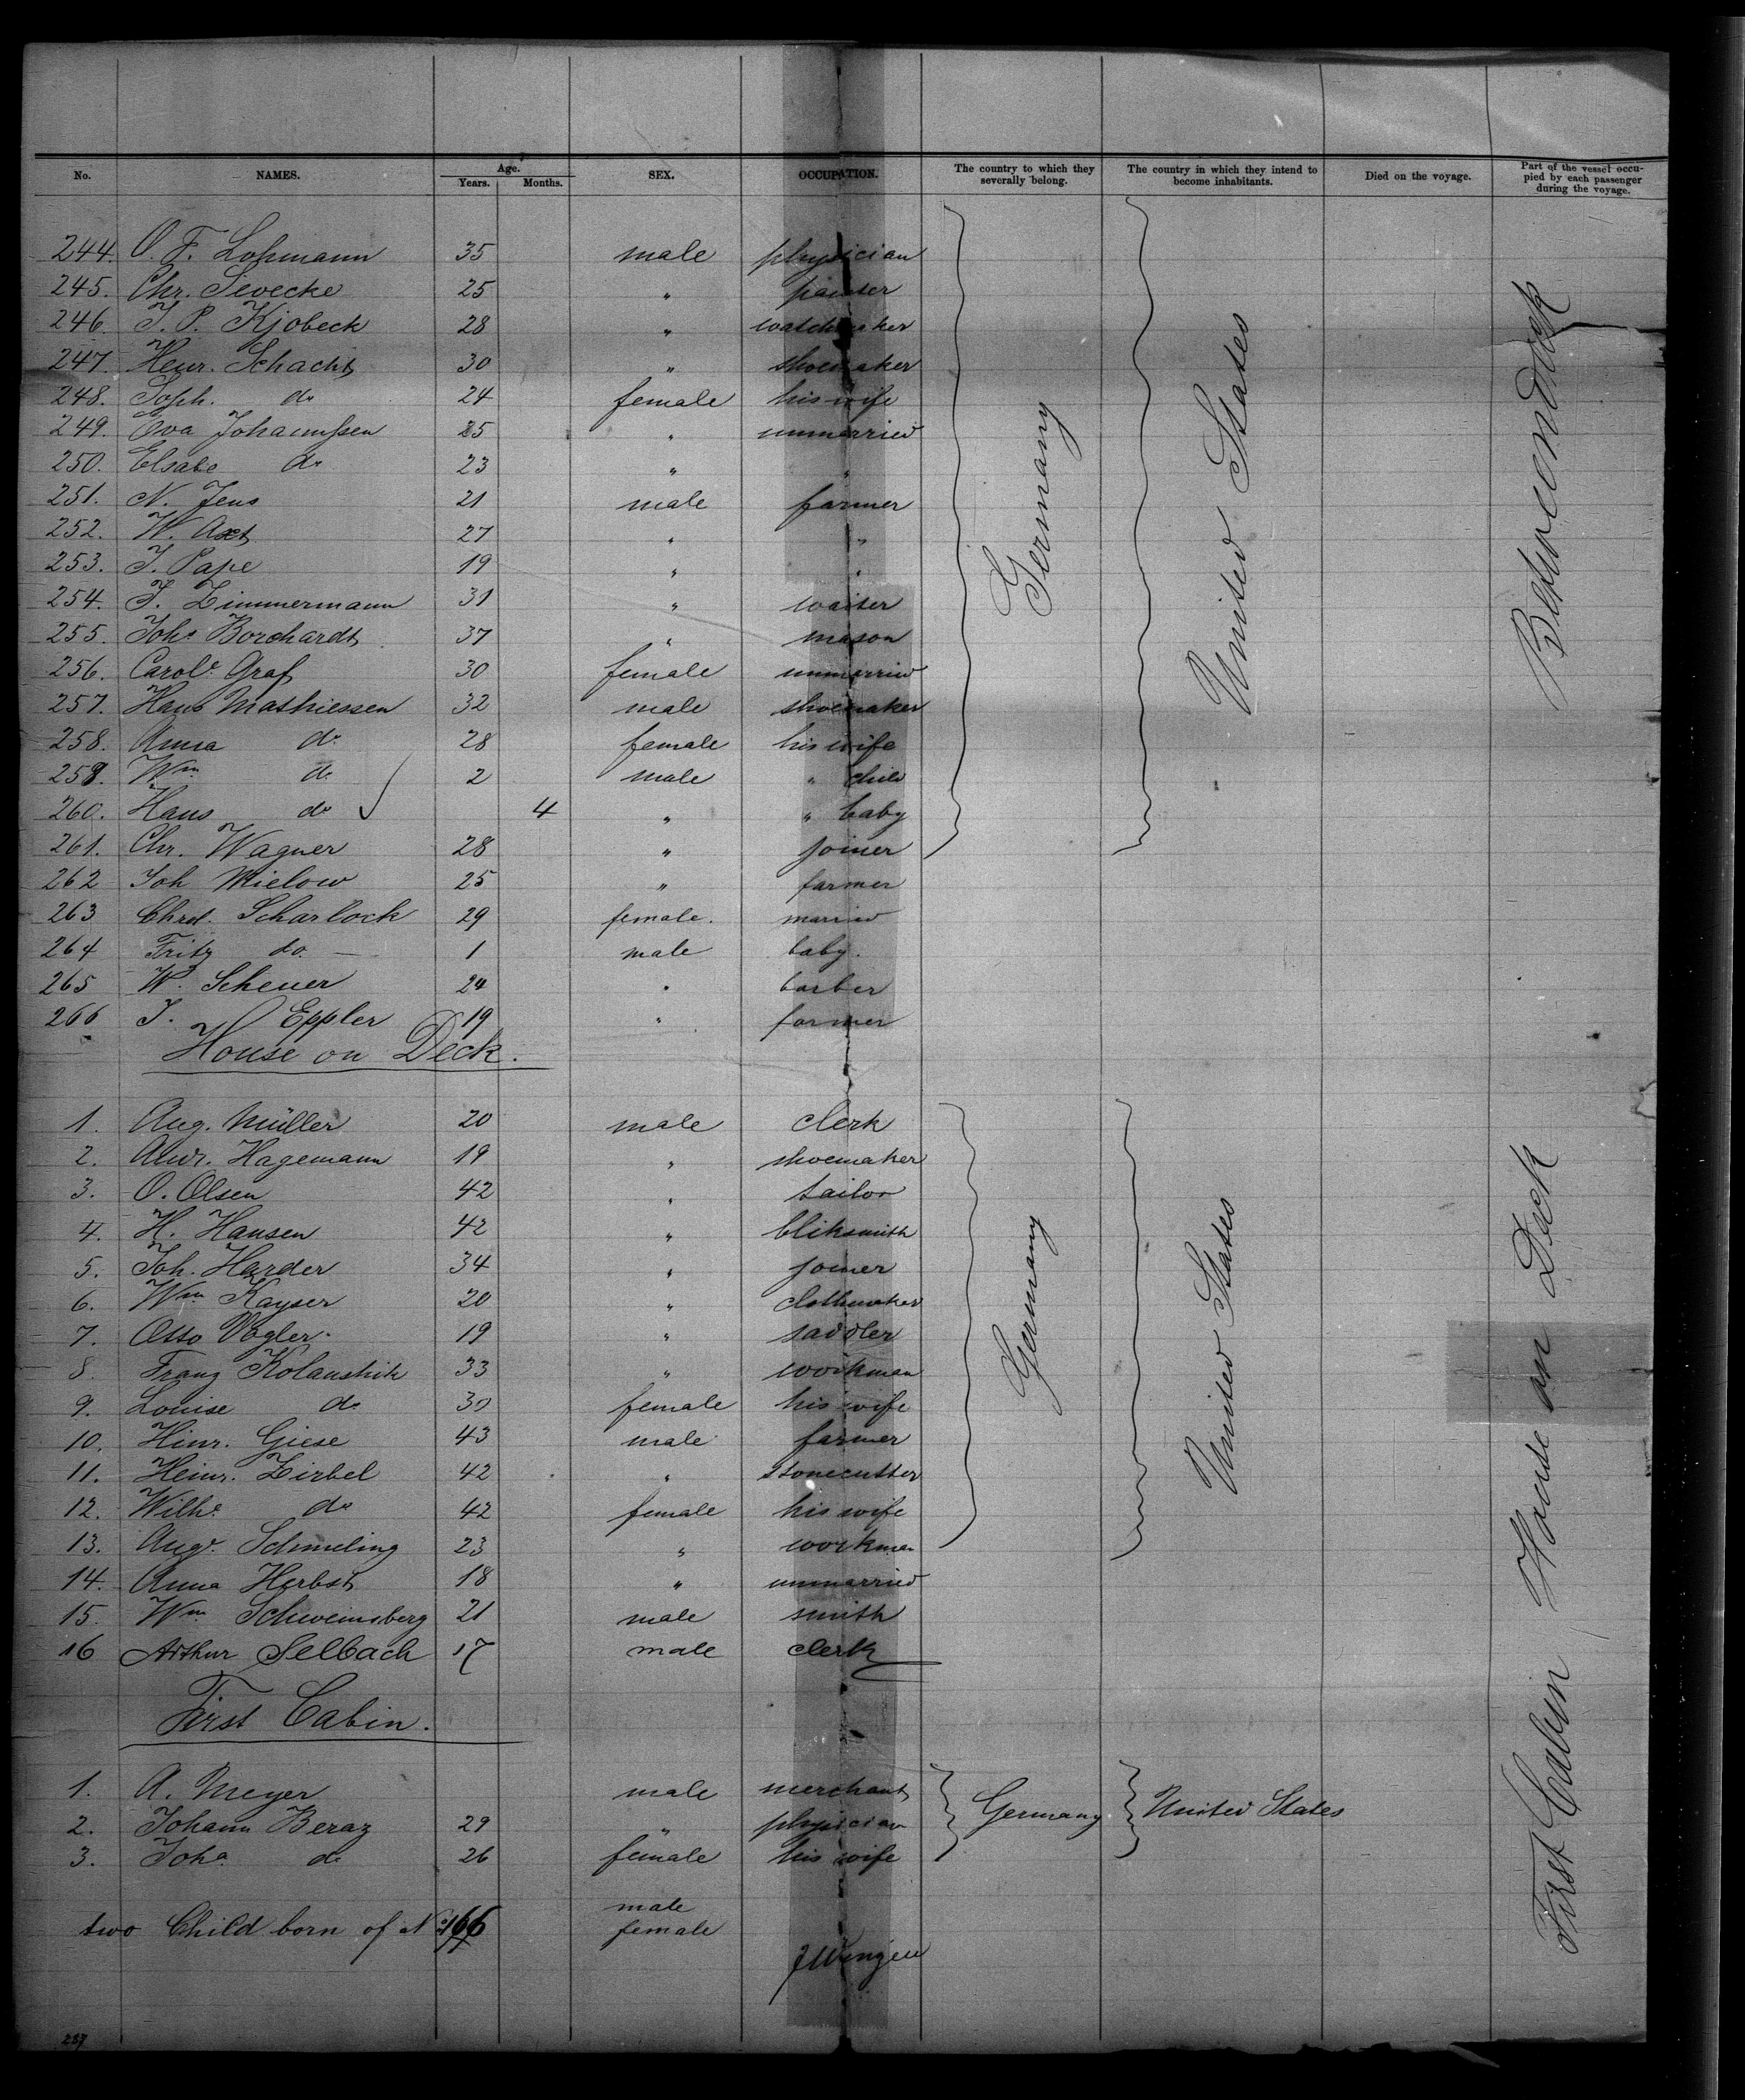 No. NAMES. Age. Years. Months. SEX. OCCUPATION. The country to which they severally belong. The country in which they intend to become inhabitants. Died on the voyage. Part of the vessel occupied by each passenger during the voyage.
244. O. F. Lohmann 35 male physician
245. Chr. Sivecke 25 " painter
246. J. P. Kjobeck 28 " watchmaker
247. Henr. Schacht 30 " shoemaker
248. Soph. do 24 female his wife
249. Eva Johannssen 25 " unmarried
250. Elsabe do 23 " "
251. N. Jens 21 male farmer
252. W. Axt 27 " "
253. J. Pape 19 " "
254. J. Zimmermann 31 " waiter
255. Johs Borchardt 37 " mason
256. Carole Graf 30 female unmarried
257. Hans Mathiessen 32 male shoemaker
258. Anna do 28 female his wife
259. Wm do 2 male " child
260. Hans do 4 " " baby
261. Chr. Wagner 28 " joiner
262 Joh Mielow 25 " farmer
263 Chrd. Scharlock 29 female. married
264 Fritz do. — 1 male baby.
265 W. Scheuer 24 " barber
266 J. Eppler 19 " farmer
Germany
United States
Betweendeck
House on Deck.
1. Aug. Müller 20 male clerk
2. Andr. Hagemann 19 " shoemaker
3. O. Olsen 42 " tailor
4. H. Hansen 42 " bliksmith
5. Joh. Harder 34 " joiner
6. Wm Kayser 20 " clothmaker
7. Otto Vogler. 19 " saddler
8. Franz Kolaushik 33 " workman
9. Louise do 30 female his wife
10. Hinr. Giese 43 male farmer
11. Heinr. Zirbel 42 " stonecutter
12. Wilhe do 42 female his wife
13. Auge. Schmeling 23 " workman
14. Anna Herbst 18 " unmarried
15. Wm Schweinsberg 21 male smith
16 Arthur Selbach 17 male clerk
Germany
United States
House on Deck
First Cabin.
1. A. Meyer male merchant
2. Johann Beraz 29 " physician
3. Joha do 26 female his wife
Germany United States
First Cabin
male
two Child born of No 166 female
237